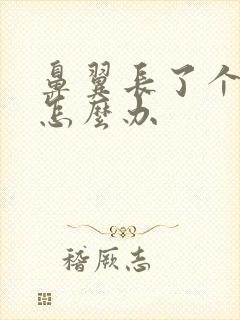 鼻翼長了个
怎麼办
稽厥志